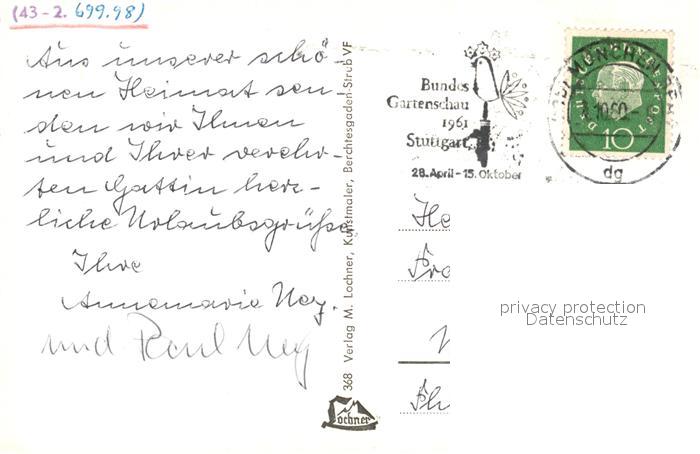 (43-2. 699.98)
Aus unserer schö
nen Heimat sen-
den wir Ihnen
und Ihrer verehr-
ten Gattin herz-
liche Urlaubsgrüße,
Ihre
Annemarie Ney.
und Paul Ney
368 Verlag M. Lochner, Kunstmaler, Berchtesgaden-Strub VF
Lochner
Bundes
Gartenschau
1961
Stuttgart
28. April - 15. Oktober
MÜNCHEN
10.60
dg
DEUTSCHE BUNDESPOST
10
He
Fra
privacy protection
Datenschutz